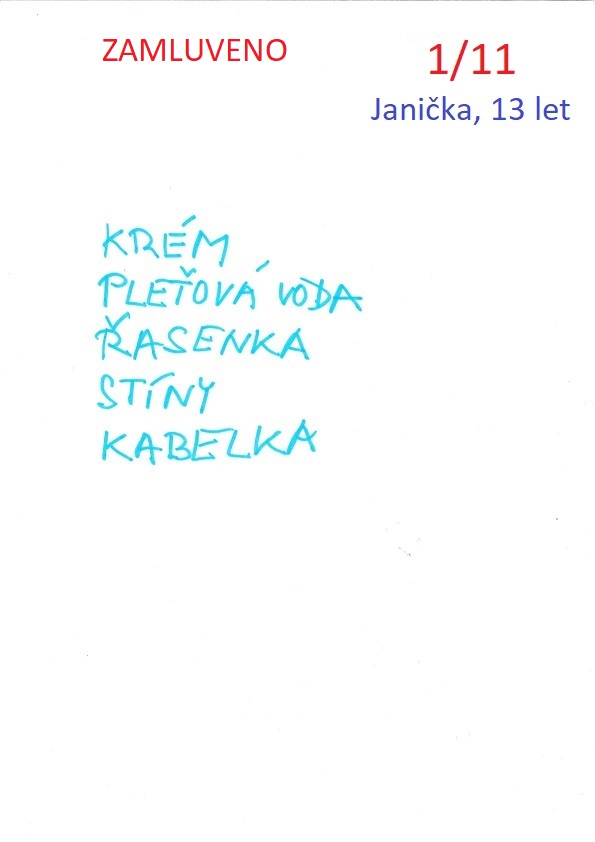 ZAMLUVENO
1/11
Janička, 13 let
KRÉM
PLEŤOVÁ VODA
ŘASENKA
STÍNY
KABELKA